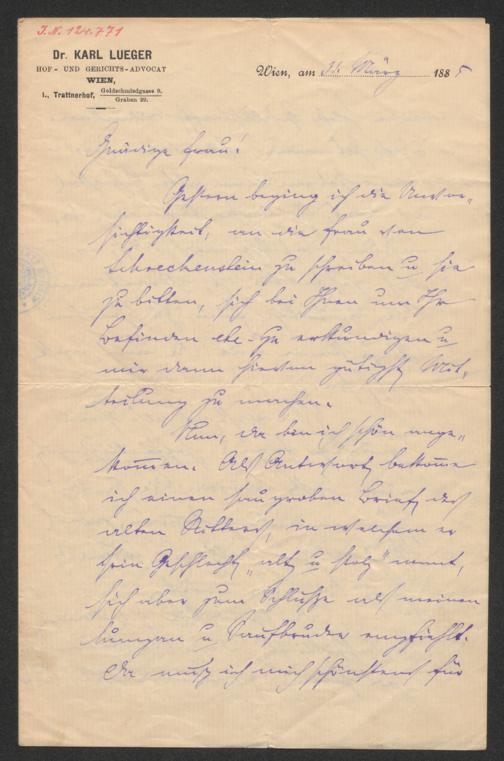 J.N. 124.771
Dr. KARL LUEGER
HOF- UND GERICHTS-ADVOCAT
WIEN,
I., Trattnerhof, Goldschmiedgasse 9.
Graben 29.
Wien, am März 188
Gnädige Frau!
Gestern beging ich die Unvor„
sichtigkeit, an die Frau von
Schreckenstein zu schreiben u sie
zu bitten, sich bei Ihnen um Ihr
Befinden etc. zu erkundigen u
mir dann hievon gütigst Mit„
teilung zu machen.
Nun, da bin ich schön ange„
kommen. Als Antwort bekomme
ich einen saugroben Brief des
alten Ritters, in welchem er
sein Geschlecht „alt u stolz" nennt,
sich aber zum Schluße als meinen
u Saufbruder empfiehlt.
Da muß ich mich schönstens für